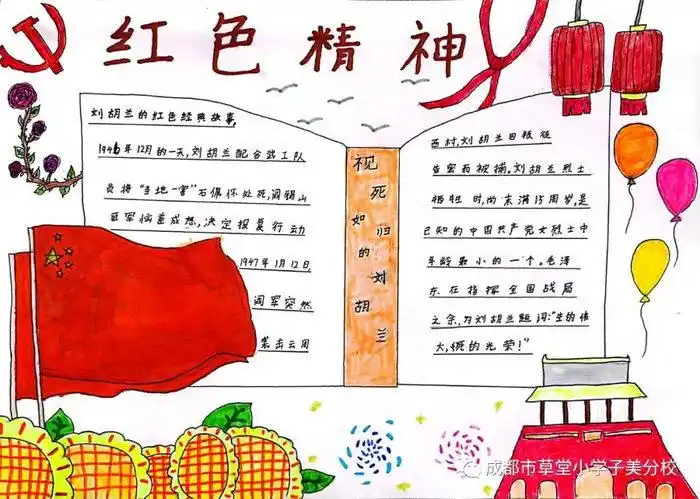 红色精神
刘胡兰的红色经典故事
1946年12月的一天,刘胡兰配合武工队
员将“当地一害”石佩怀处死,阎锡山
匪军恼羞成怒,决定报复行动
1947年1月12日
阎军突然
袭击云周
视死如归的刘胡兰
西村,刘胡兰因叛徒
告密而被捕,刘胡兰烈士
牺牲时,尚未满15周岁,是
已知的中国共产党女烈士中
年龄最小的一个。毛泽
东在指挥全国战局
之余,为刘胡兰题词:“生的伟
大,死的光荣!”
成都市草堂小学子美分校